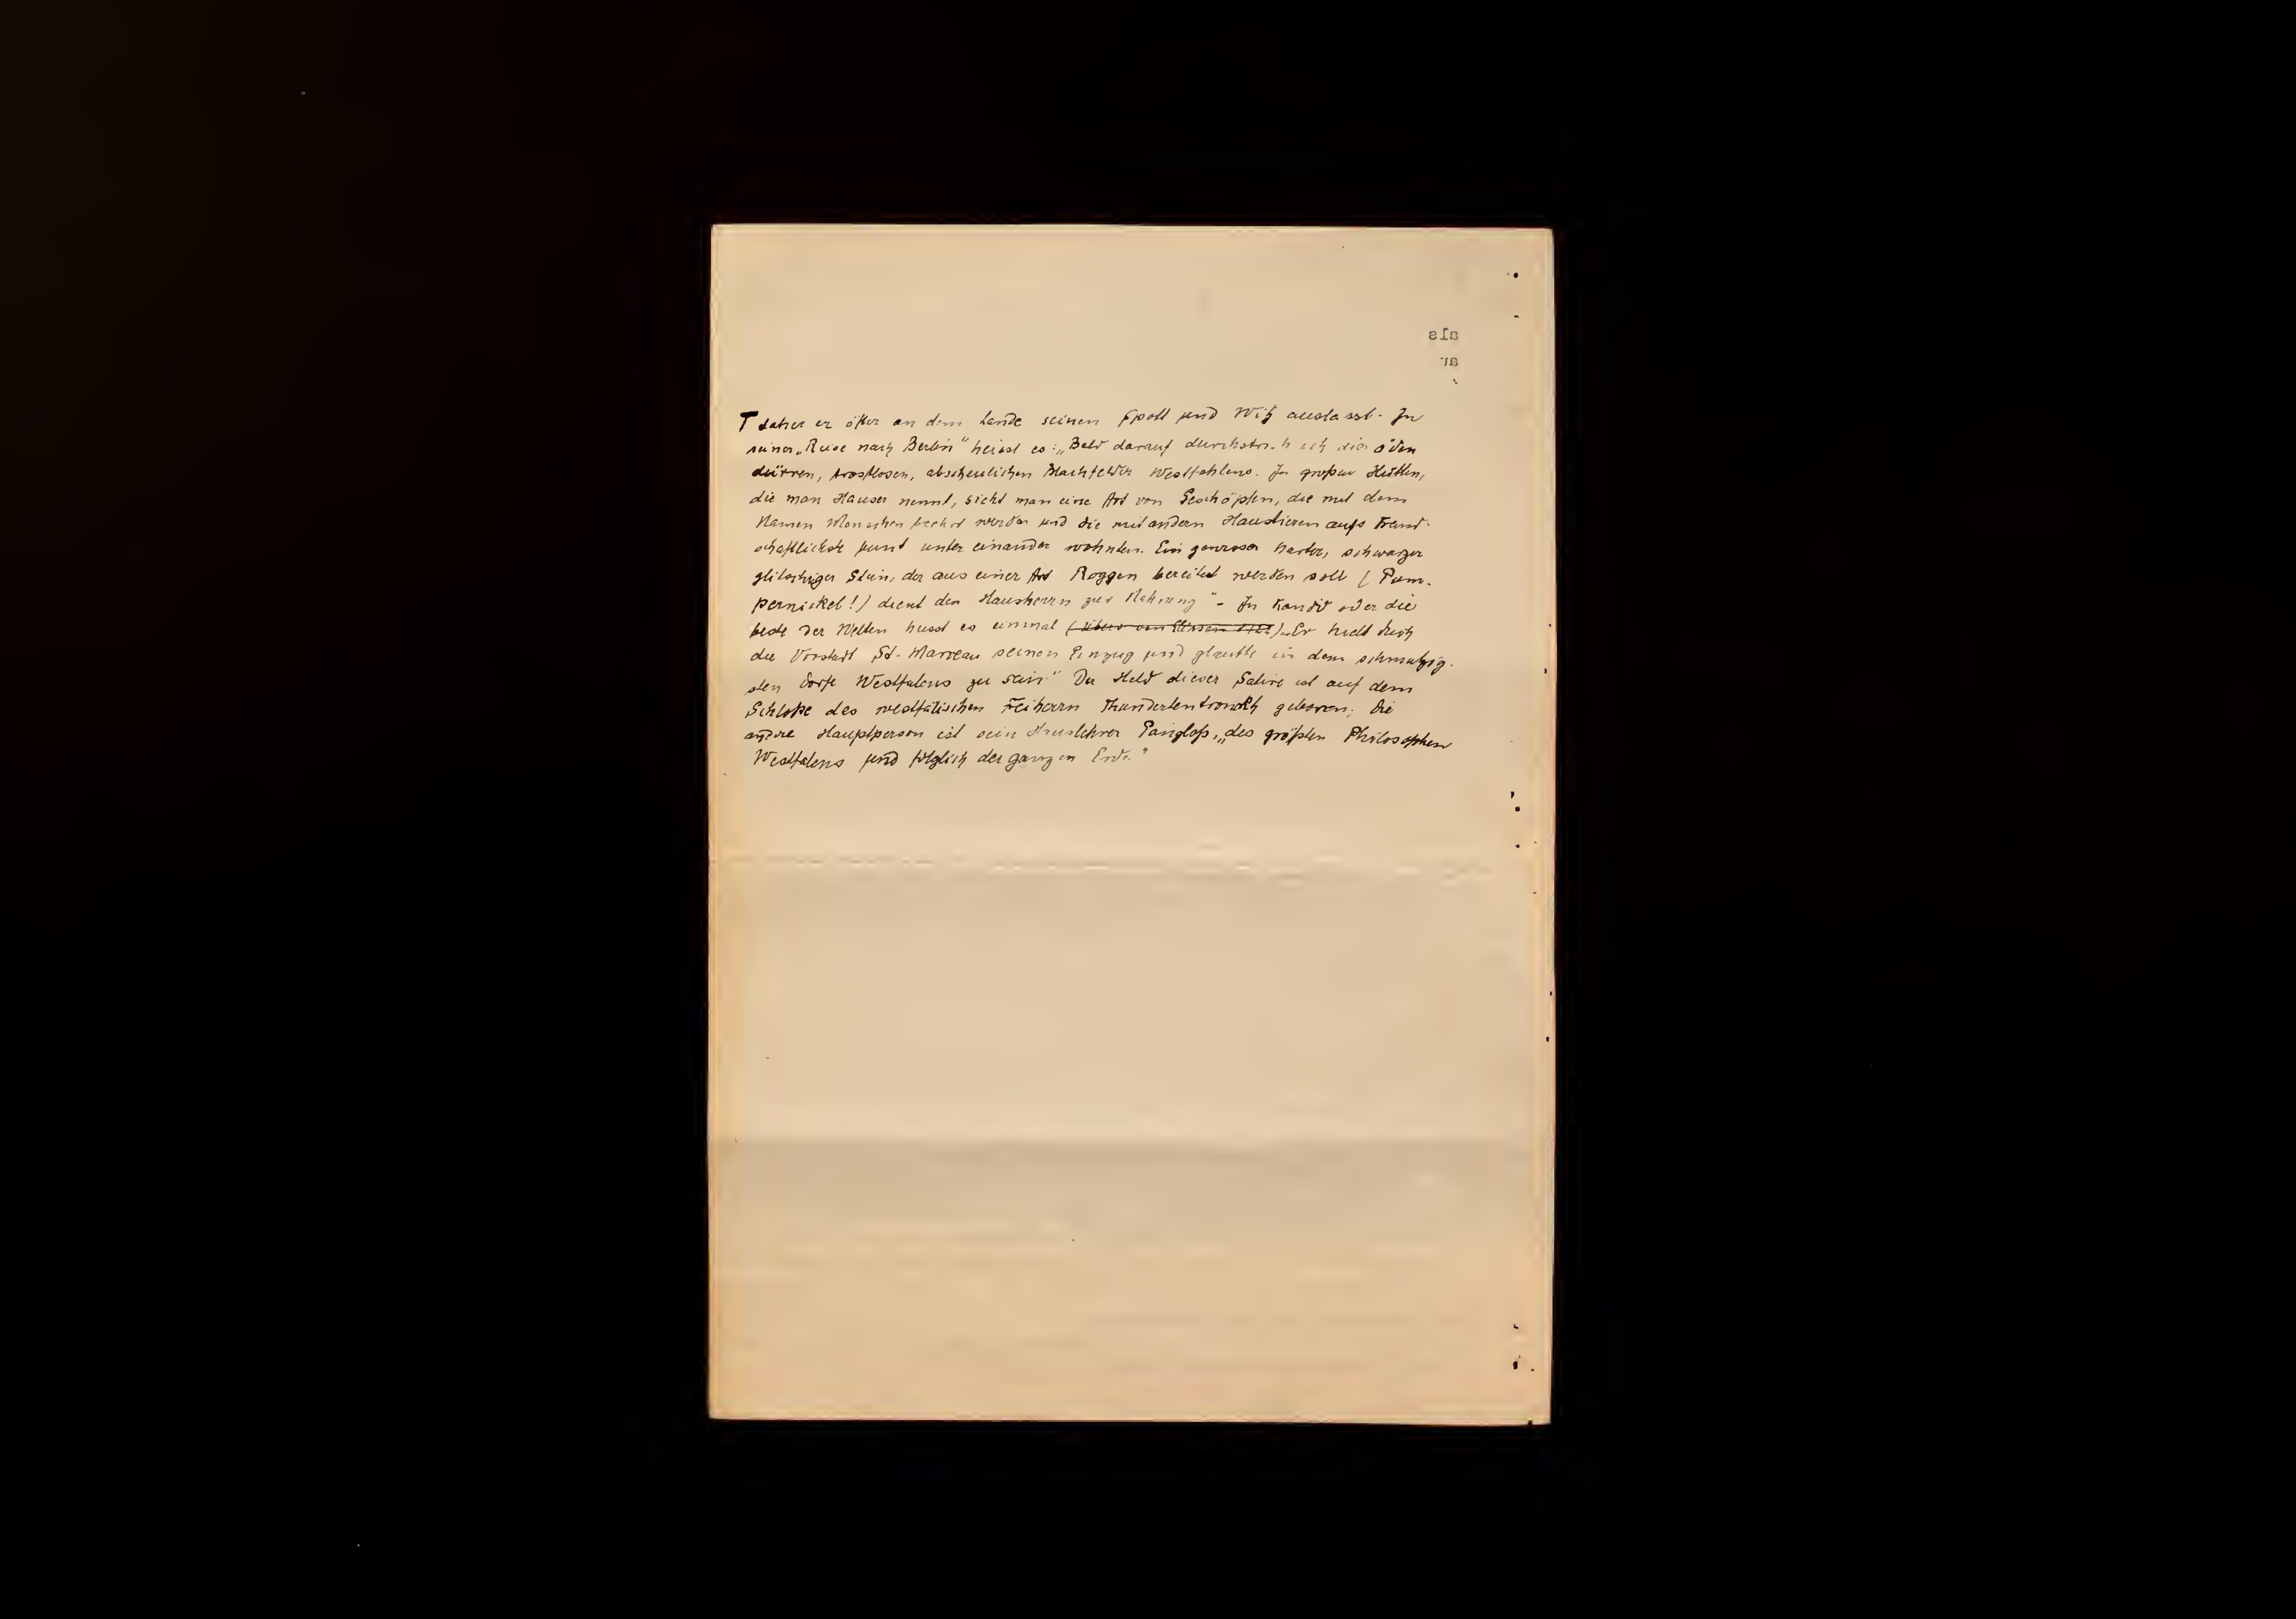 als
ar
T daher er öfter an dem Lande seinen Spott und Witz auslasst. In
seiner „Reise nach Berlin" heisst es: „Bald darauf durchstrich ich die öden
dürren, trostlosen, abscheulichen Blachfelder Westfahlens. In großen Hütten,
die man Hauser nennt, sieht man eine Art von Geschöpfen, die mit dem
Namen Menschen beehrt werden und die mit andern Haustieren aufs Freund-
schaftlichste bunt unter einander wohnten. Ein gewisser harter, schwarzer
glitschiger Stein, der aus einer Art Roggen bereitet werden soll (Pum-
pernickel!) dient den Hausherrn zur Nahrung" - In Kandid oder die
beste der Welten heisst es einmal „Er hielt durch
die Vorstadt St. Marceau seinen Einzug und glaubte in dem schmutzig-
sten Dorfe Westfalens zu sein" Der Held dieser Satire ist auf dem
Schloße des westfälischen Freiherrn geboren; die
andre Hauptperson ist sein Hauslehrer Pangloß, „des größten Philosophen
Westfalens und folglich der ganzen Erde."